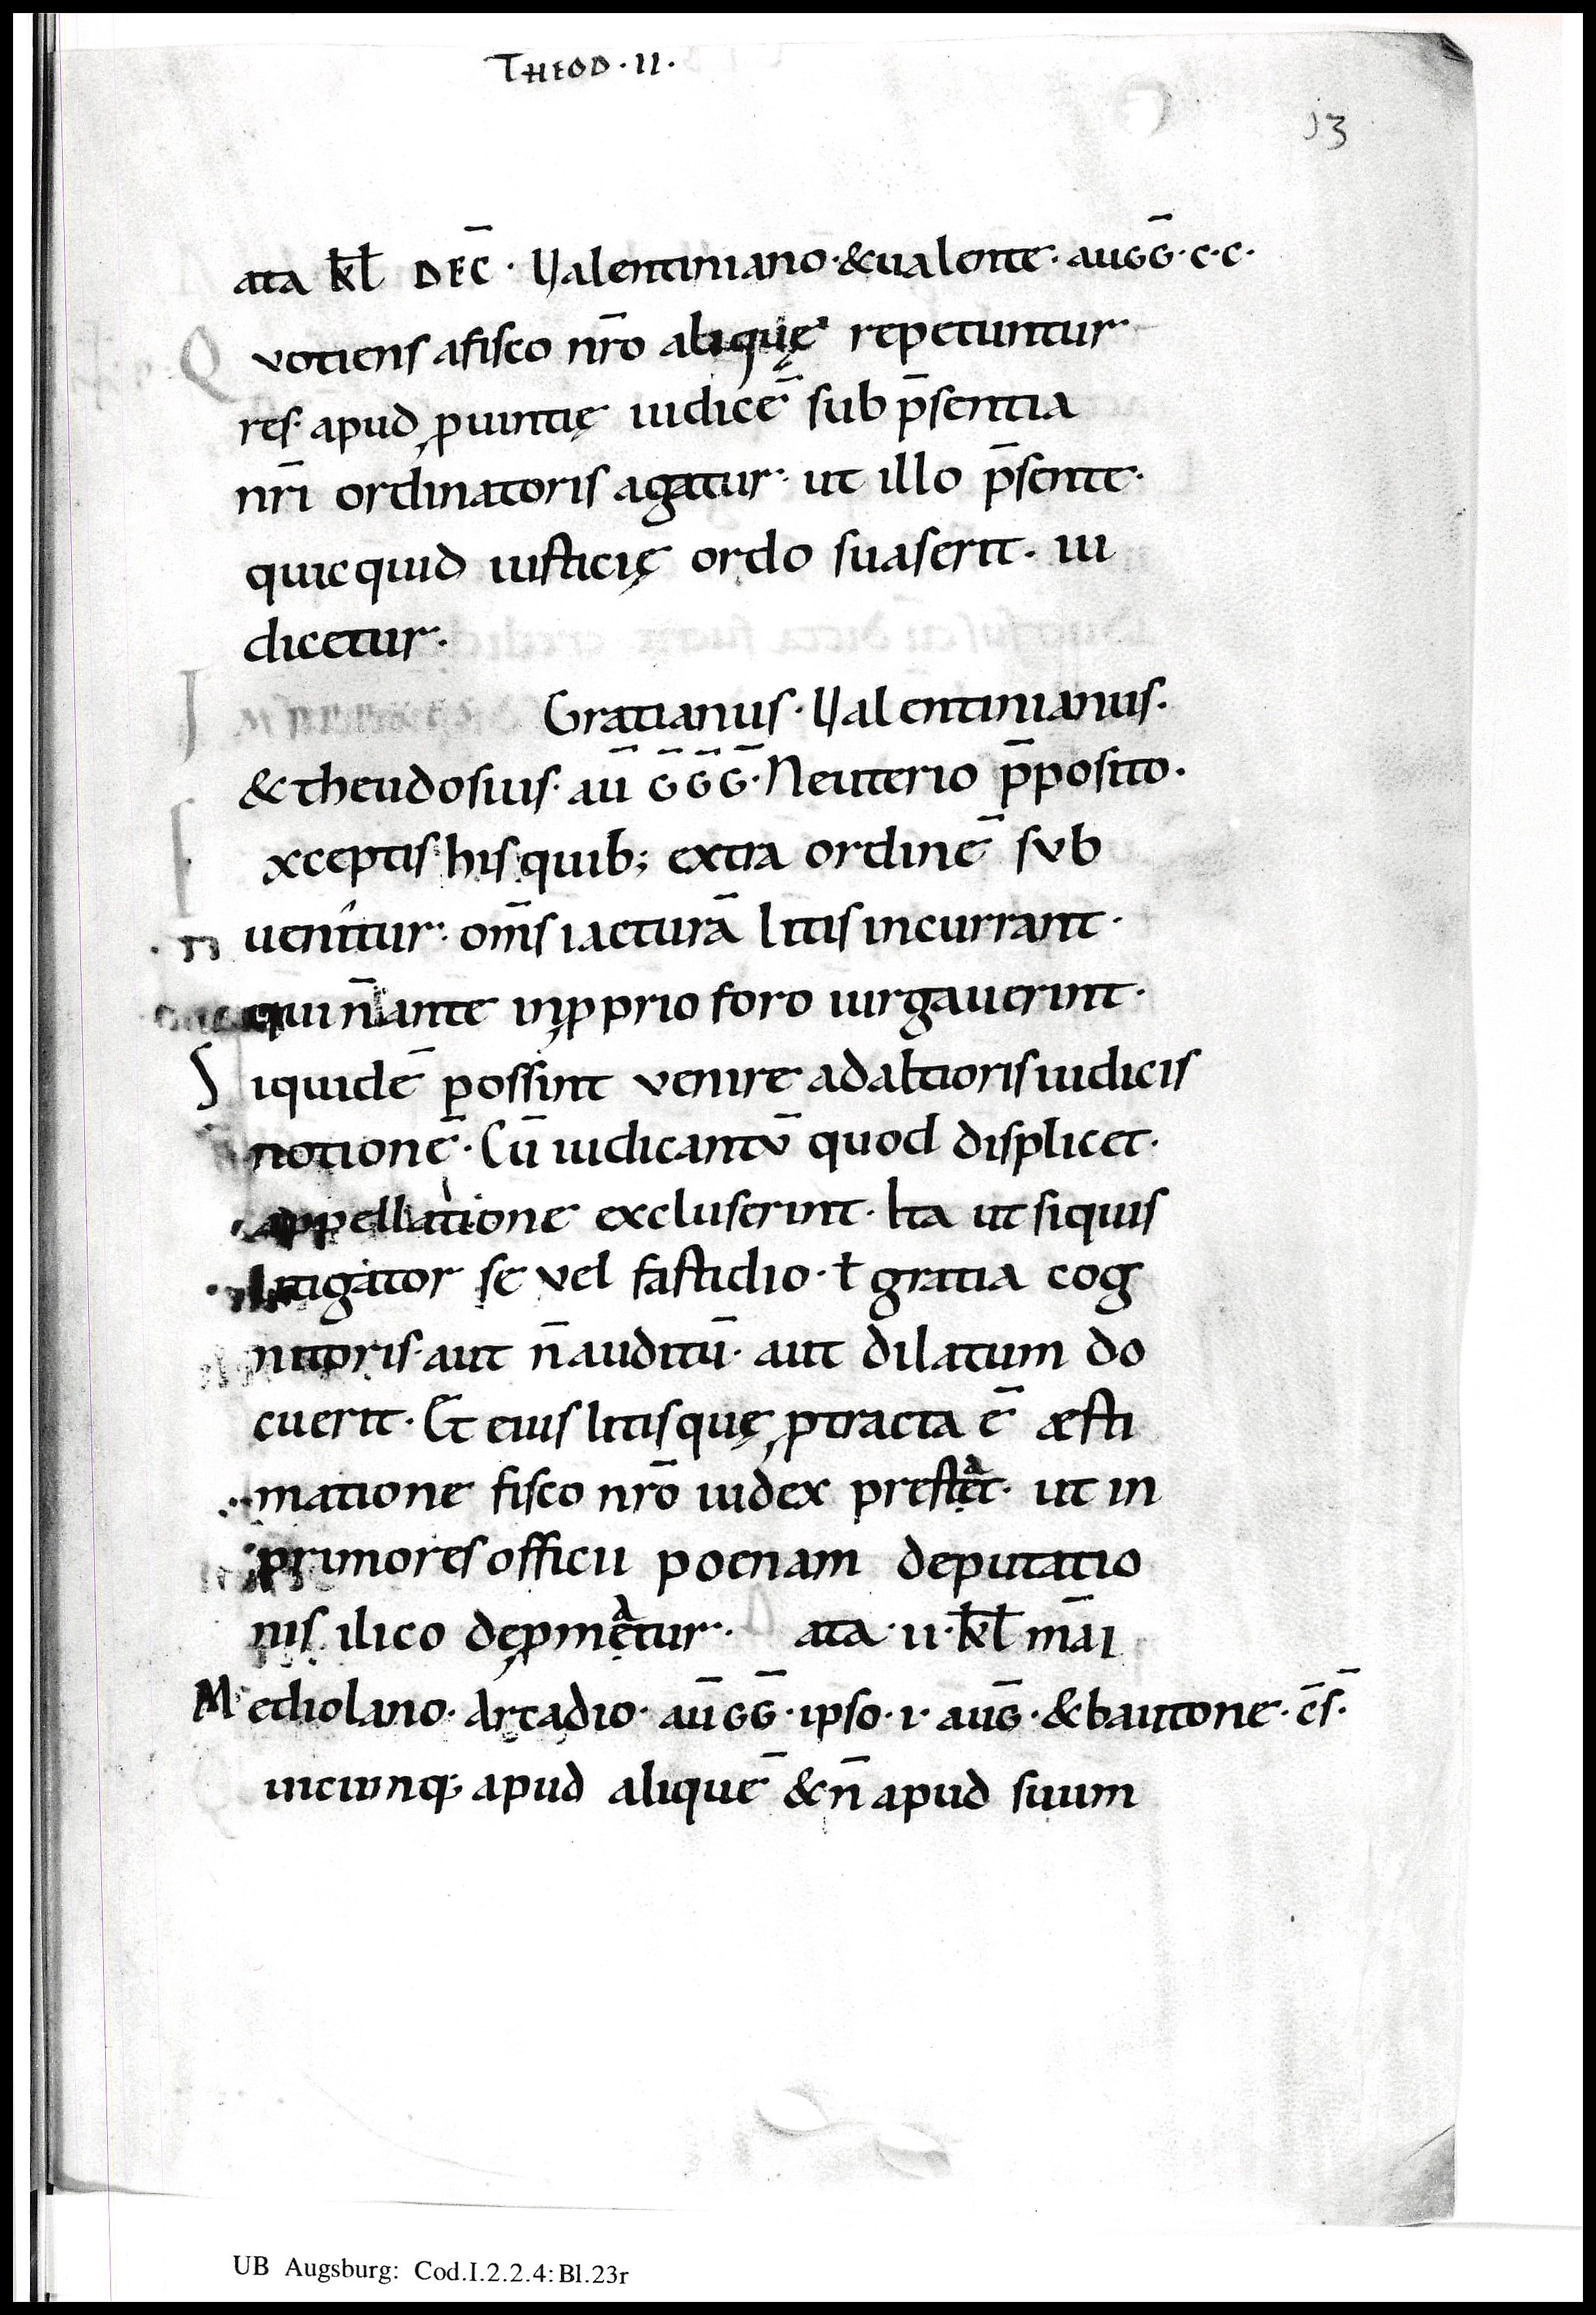 THEOD·II·
13
ata k̅l̅ DEC̅· Ualentiniano·&ualente·auGG̅·c·c·
Q votiens afisco nr̅o aliquę repetuntur
res· apud ꝓuintię iudicē sub p̅sentia
nr̅i ordinatoris agatur· ut illo p̅sente·
quicquid iusticię ordo suaserit· iu
dicetur·
I Gratianus·Ualentinianus·
& theudosius· au̅ G̅G̅G̅· Neuterio p̅posito·
xceptis his quib; extra ordinē svb
uenitur· om̅s iacturā litis incurrant·
qui n̅ ante inꝓprio foro iurgauerint·
S iquidē possint venire ad altioris iudicis
notionē· Cū iudicantv̄ quod displicet·
appellatione excluserint· Ita ut siquis
litigator se vel fastidio· ł gratia cog
nitoris· aut n̅ auditū· aut dilatum do
cuerit· Et eius litis quę ꝓtracta ē æsti
matione fisco nr̅o iudex prestet· ut in
primores officii poenam deputatio
nis ilico deꝓmetur· D ata·ii·k̅l̅ māi
M ediolano· Arcadio· au̅GG̅·ipso·i·auG̅·&bautone·c̅s̅·
uicunq; apud aliquē & n̅ apud suum
UB Augsburg: Cod.I.2.2.4:Bl.23r